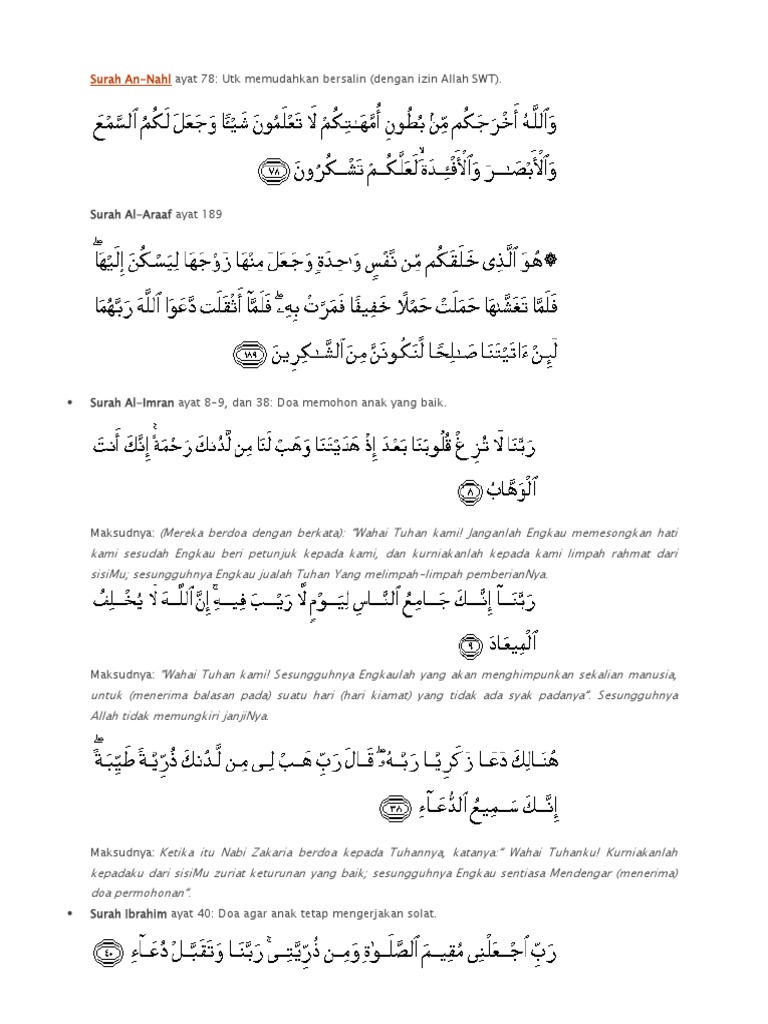 Surah An-Nahl ayat 78: Utk memudahkan bersalin (dengan izin Allah SWT).
وَٱللَّهُ أَخْرَجَكُم مِّنۢ بُطُونِ أُمَّهَـٰتِكُمْ لَا تَعْلَمُونَ شَيْـًٔا وَجَعَلَ لَكُمُ ٱلسَّمْعَ
وَٱلْأَبْصَـٰرَ وَٱلْأَفْـِٔدَةَ ۙ لَعَلَّكُمْ تَشْكُرُونَ ٧٨
Surah Al-Araaf ayat 189
۞ هُوَ ٱلَّذِى خَلَقَكُم مِّن نَّفْسٍ وَٰحِدَةٍ وَجَعَلَ مِنْهَا زَوْجَهَا لِيَسْكُنَ إِلَيْهَا ۖ
فَلَمَّا تَغَشَّىٰهَا حَمَلَتْ حَمْلًا خَفِيفًا فَمَرَّتْ بِهِۦ ۖ فَلَمَّآ أَثْقَلَت دَّعَوَا ٱللَّهَ رَبَّهُمَا
لَئِنْ ءَاتَيْتَنَا صَـٰلِحًا لَّنَكُونَنَّ مِنَ ٱلشَّـٰكِرِينَ ١٨٩
• Surah Al-Imran ayat 8-9, dan 38: Doa memohon anak yang baik.
رَبَّنَا لَا تُزِغْ قُلُوبَنَا بَعْدَ إِذْ هَدَيْتَنَا وَهَبْ لَنَا مِن لَّدُنكَ رَحْمَةً ۚ إِنَّكَ أَنتَ
ٱلْوَهَّابُ ٨
Maksudnya: (Mereka berdoa dengan berkata): "Wahai Tuhan kami! Janganlah Engkau memesongkan hati
kami sesudah Engkau beri petunjuk kepada kami, dan kurniakanlah kepada kami limpah rahmat dari
sisiMu; sesungguhnya Engkau jualah Tuhan Yang melimpah-limpah pemberianNya.
رَبَّنَآ إِنَّكَ جَامِعُ ٱلنَّاسِ لِيَوْمٍ لَّا رَيْبَ فِيهِ ۚ إِنَّ ٱللَّهَ لَا يُخْلِفُ
ٱلْمِيعَادَ ٩
Maksudnya: "Wahai Tuhan kami! Sesungguhnya Engkaulah yang akan menghimpunkan sekalian manusia,
untuk (menerima balasan pada) suatu hari (hari kiamat) yang tidak ada syak padanya". Sesungguhnya
Allah tidak memungkiri janjiNya.
هُنَالِكَ دَعَا زَكَرِيَّا رَبَّهُۥ ۖ قَالَ رَبِّ هَبْ لِى مِن لَّدُنكَ ذُرِّيَّةً طَيِّبَةً ۖ
إِنَّكَ سَمِيعُ ٱلدُّعَآءِ ٣٨
Maksudnya: Ketika itu Nabi Zakaria berdoa kepada Tuhannya, katanya:" Wahai Tuhanku! Kurniakanlah
kepadaku dari sisiMu zuriat keturunan yang baik; sesungguhnya Engkau sentiasa Mendengar (menerima)
doa permohonan".
• Surah Ibrahim ayat 40: Doa agar anak tetap mengerjakan solat.
رَبِّ ٱجْعَلْنِى مُقِيمَ ٱلصَّلَوٰةِ وَمِن ذُرِّيَّتِى ۚ رَبَّنَا وَتَقَبَّلْ دُعَآءِ ٤٠